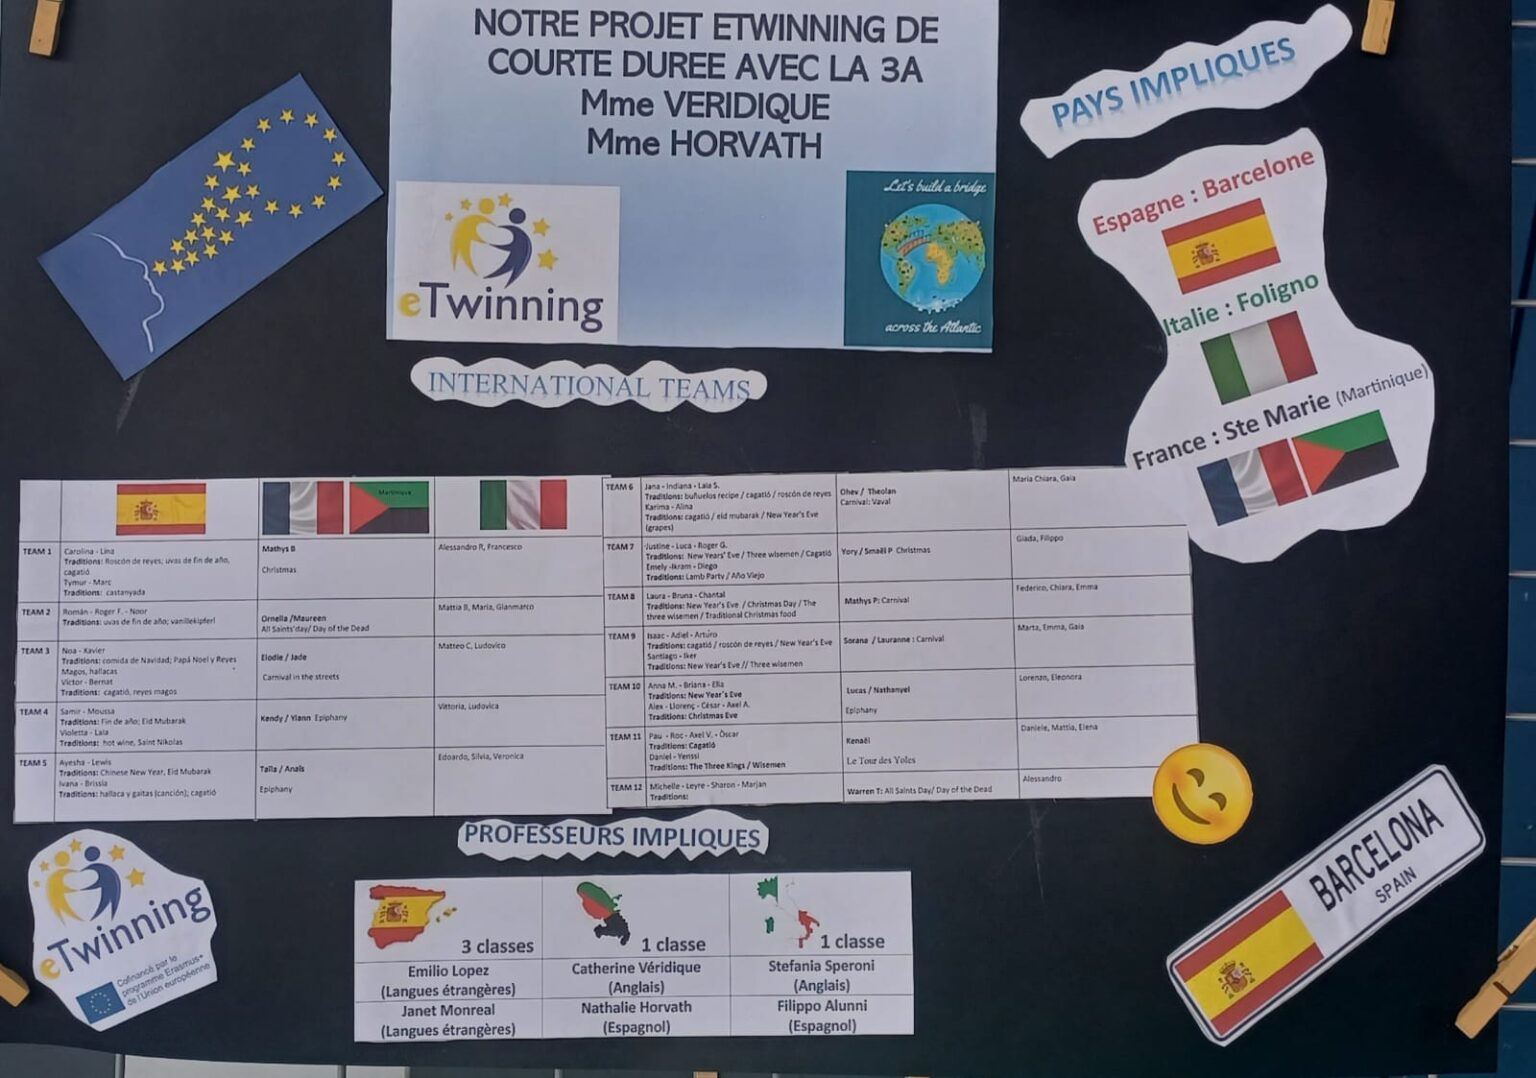 NOTRE PROJET ETWINNING DE
COURTE DUREE AVEC LA 3A
Mme VERIDIQUE
Mme HORVATH
eTwinning
Let's build a bridge
across the Atlantic
PAYS IMPLIQUES
Espagne : Barcelone
Italie : Foligno
France : Ste Marie (Martinique)
INTERNATIONAL TEAMS
Martinique
TEAM 1
Carolina - Lina
Traditions: Roscón de reyes; uvas de fin de año,
cagatió
Tymur - Marc
Traditions: castanyada
Mathys B
Christmas
Alessandro R, Francesco
TEAM 2
Román - Roger F. - Noor
Traditions: uvas de fin de año; vanillekipferl
Ornella /Maureen
All Saints'day/ Day of the Dead
Mattia B, Maria, Gianmarco
TEAM 3
Noa - Xavier
Traditions: comida de Navidad; Papá Noel y Reyes
Magos, hallacas
Victor - Bernat
Traditions: cagatió, reyes magos
Elodie / Jade
Carnival in the streets
Matteo C, Ludovico
TEAM 4
Samir - Moussa
Traditions: Fin de año; Eid Mubarak
Violetta - Laia
Traditions: hot wine, Saint Nikolas
Kendy / Ylann Epiphany
Vittoria, Ludovica
TEAM 5
Ayesha - Lewis
Traditions: Chinese New Year, Eid Mubarak
Ivana - Brissia
Traditions: hallaca y gaitas (canción); cagatió
Talia / Anaïs
Epiphany
Edoardo, Silvia, Veronica
TEAM 6
Jana - Indiana - Laia S.
Traditions: buñuelos recipe / cagatió / roscón de reyes
Karima - Alina
Traditions: cagatió / eid mubarak / New Year's Eve
(grapes)
Ohev / Theolan
Carnival: Vaval
Maria Chiara, Gaia
TEAM 7
Justine - Luca - Roger G.
Traditions: New Years' Eve / Three wisemen / Cagatió
Emely -Ikram - Diego
Traditions: Lamb Party / Año Viejo
Yory / Smaël P Christmas
Giada, Filippo
TEAM 8
Laura - Bruna - Chantal
Traditions: New Year's Eve / Christmas Day / The
three wisemen / Traditional Christmas food
Mathys P: Carnival
Federico, Chiara, Emma
TEAM 9
Isaac - Adiel - Arturo
Traditions: cagatió / roscón de reyes / New Year's Eve
Santiago - Iker
Traditions: New Year's Eve // Three wisemen
Sorana / Lauranne : Carnival
Marta, Emma, Gaia
TEAM 10
Anna M. - Briana - Ella
Traditions: New Year's Eve
Alex - Llorenç - César - Axel A.
Traditions: Christmas Eve
Lucas / Nathanyel
Epiphany
Lorenzo, Eleonora
TEAM 11
Pau - Roc - Axel V. - Òscar
Traditions: Cagatió
Daniel - Yenssi
Traditions: The Three Kings / Wisemen
Kenaël
Le Tour des Yoles
Daniele, Mattia, Elena
TEAM 12
Michelle - Leyre - Sharon - Marjan
Traditions:
Warren T: All Saints Day/ Day of the Dead
Alessandro
PROFESSEURS IMPLIQUES
3 classes
1 classe
1 classe
Emilio Lopez
(Langues étrangères)
Catherine Véridique
(Anglais)
Stefania Speroni
(Anglais)
Janet Monreal
(Langues étrangères)
Nathalie Horvath
(Espagnol)
Filippo Alunni
(Espagnol)
eTwinning
Cofinancé par le
programme Erasmus+
de l'Union européenne
BARCELONA
SPAIN